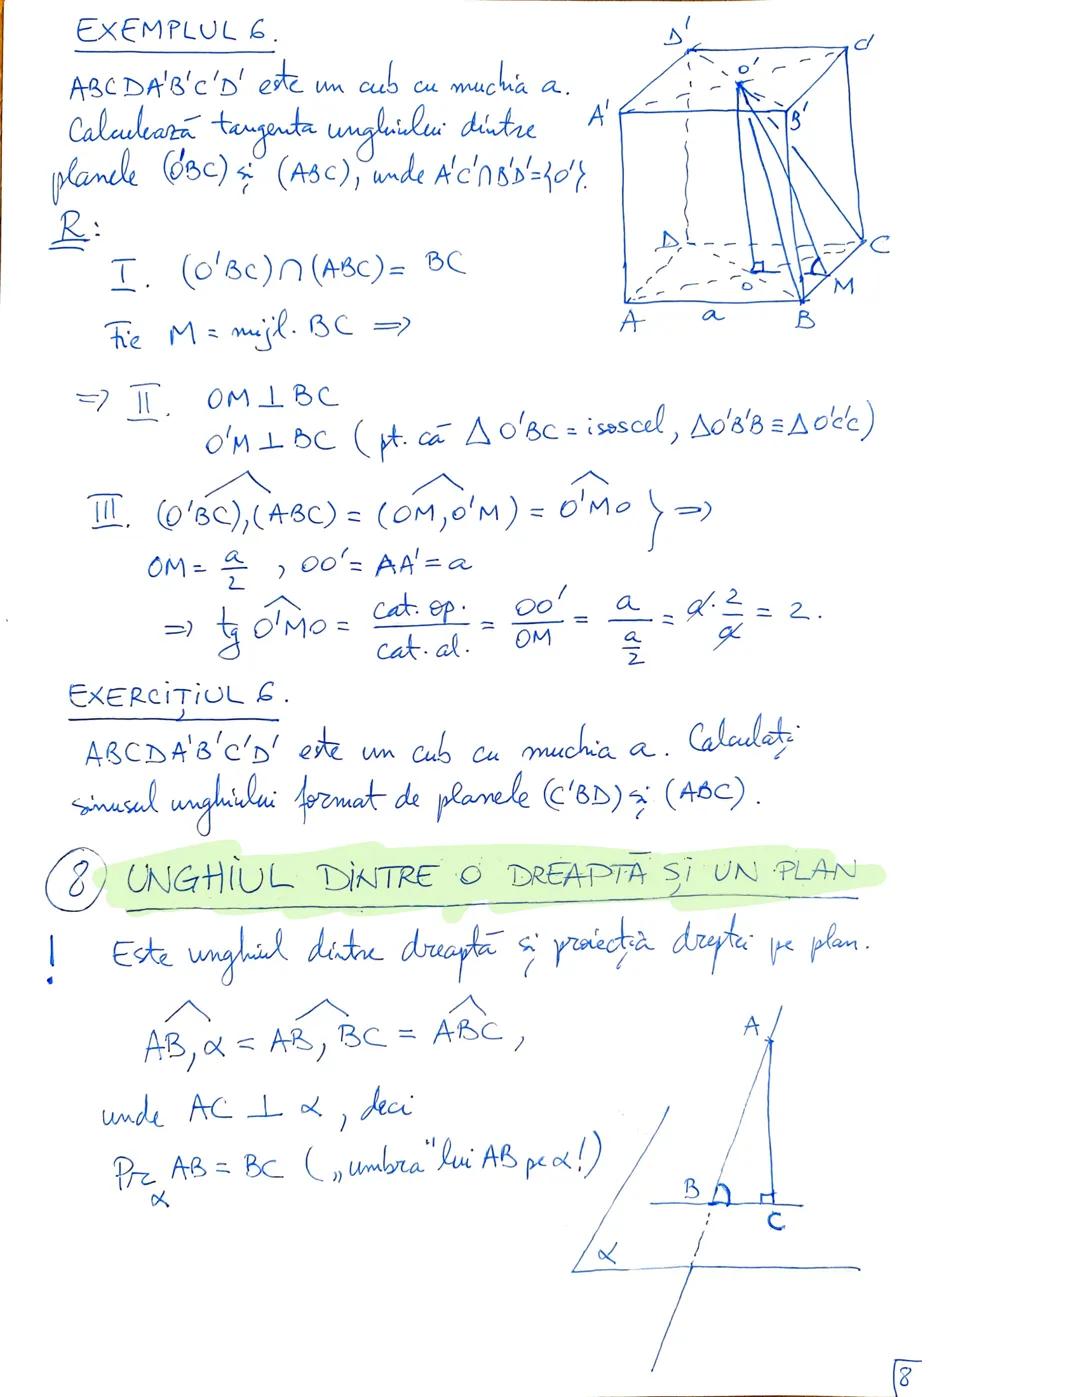 EXEMPLUL 6.
ABCDA'B'C'D' este un cub cu muchia a.
Calculează tangenta unghiului dintre
planele (O'BC) și (ABC), unde A'C'∩B'D'={O'}.
R:
I. (O'BC)∩(ABC)= BC
Fie M = mijl. BC ⇒
⇒ II. OM ⊥ BC
O'M ⊥ BC (pt. că △O'BC = isoscel, △O'B'B ≡ △O'C'C)
III. (O'BC),(ABC) = (OM,O'M) = O'MO } ⇒
OM = a/2 , OO' = AA' = a
⇒ tg O'MO = cat. op./cat. al. = OO'/OM = a/(a/2) = a · 2/a = 2.
D' C' O' A' B' D C O M A a B
EXERCIȚIUL 6.
ABCDA'B'C'D' este un cub cu muchia a. Calculați
sinusul unghiului format de planele (C'BD) și (ABC).
8 UNGHIUL DINTRE O DREAPTĂ ȘI UN PLAN
! Este unghiul dintre dreaptă și proiecția dreptei pe plan.
AB, α = AB, BC = ABC,
unde AC ⊥ α, deci
Pr_α AB = BC („umbra" lui AB pe α!)
A B C α
8